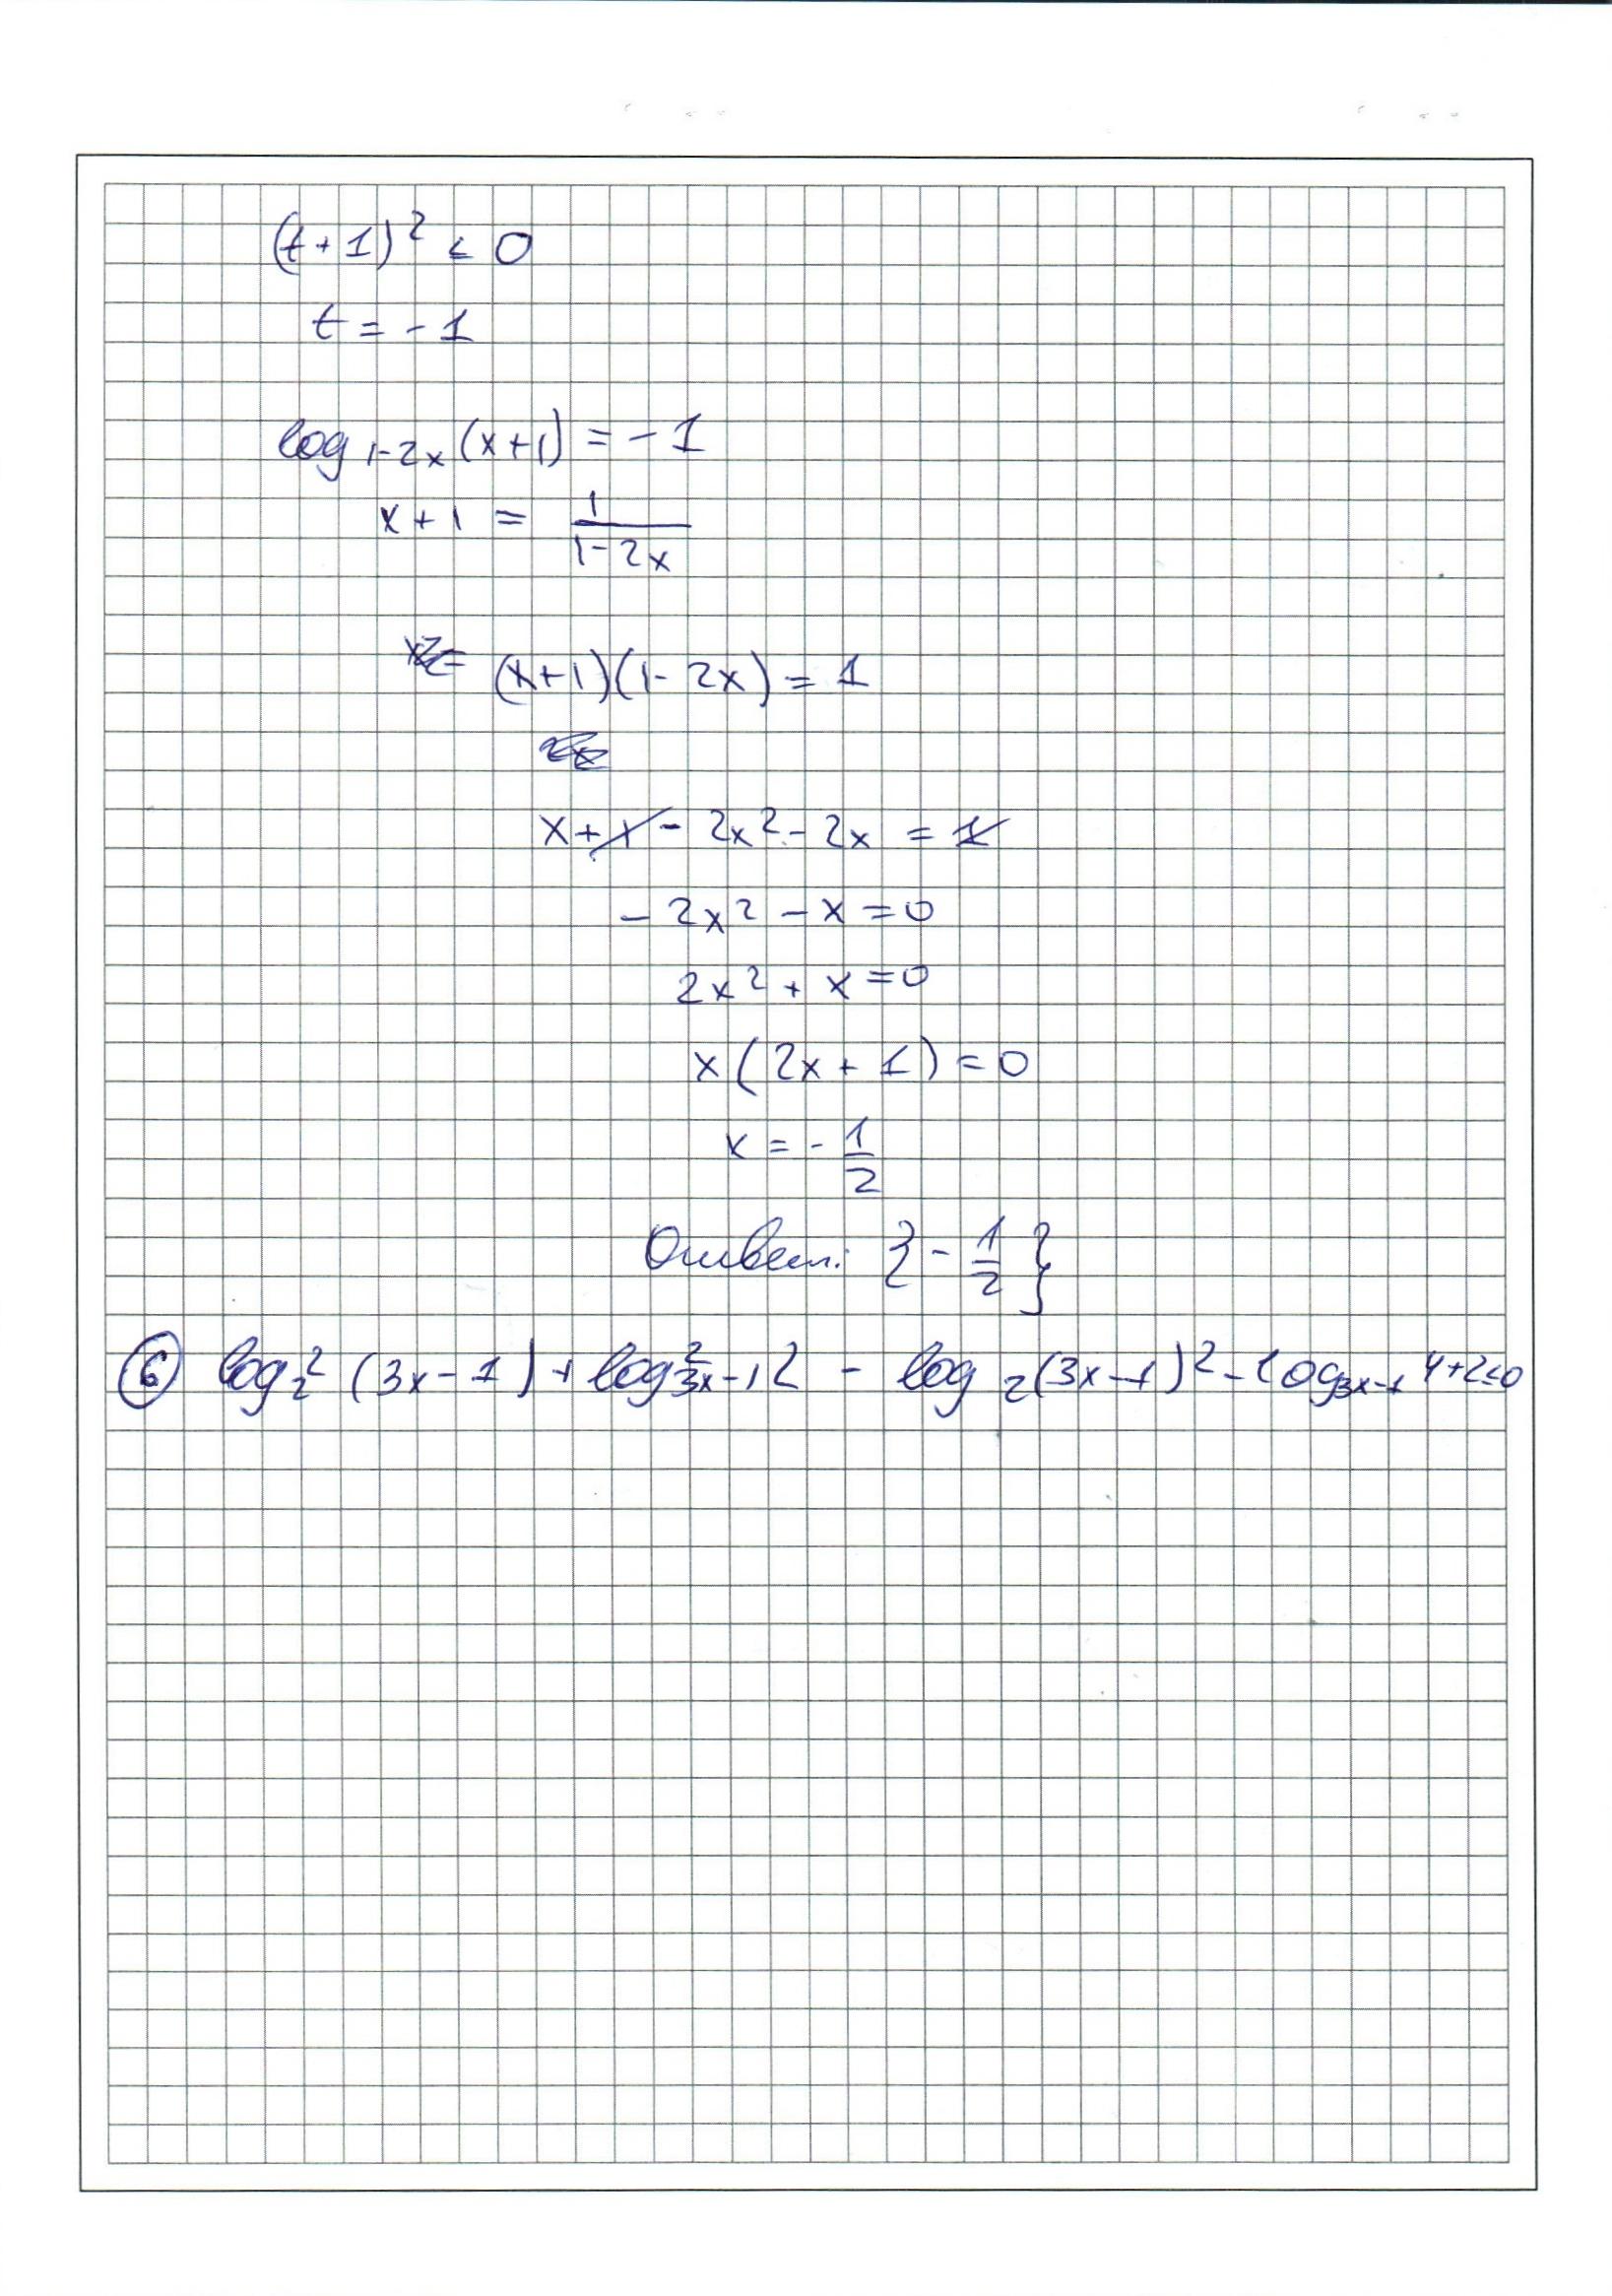 (t+1)² ≤ 0
t = -1
log₁₋₂ₓ(x+1) = -1
x+1 = 1/(1-2x)
(x+1)(1-2x) = 1
x+1 - 2x² - 2x = 1
- 2x² - x = 0
2x² + x = 0
x(2x+1) = 0
x = - 1/2
Ответ: {- 1/2}
⑥ log₂²(3x-1) + log²₃ₓ₋₁2 - log₂(3x-1)² - log₃ₓ₋₁4+2≤0